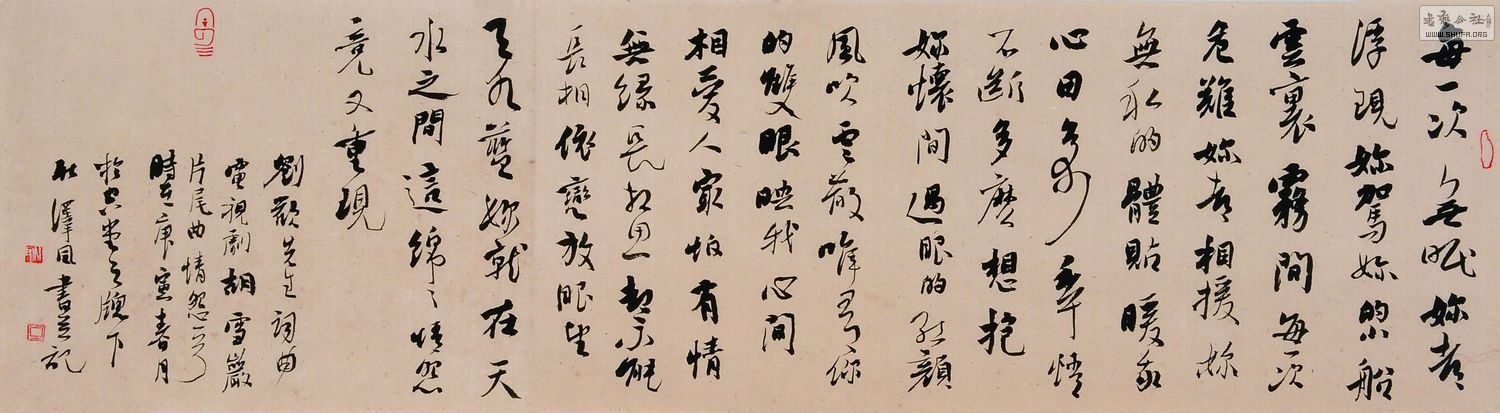 每一次無眠妳都
浮現妳駕妳的船
雲裏霧間每次
危難妳都相援妳
無私的體貼暖我
心田多少年情
不斷多麼想抱
妳懷間過眼的紅顏
風吹雲散唯有你
的雙眼映我心間
相愛人最怕有情
無緣長相思
長相依戀放眼望
天 藍妳就在天
水之間這綿々情怨
竟又重現
劉歡先生詞曲
電視劇胡雪巖
片尾曲情怨一首
時在庚寅春月
於 之牕下
澤 書並記
書藝公社
WWW.SHUFA.ORG